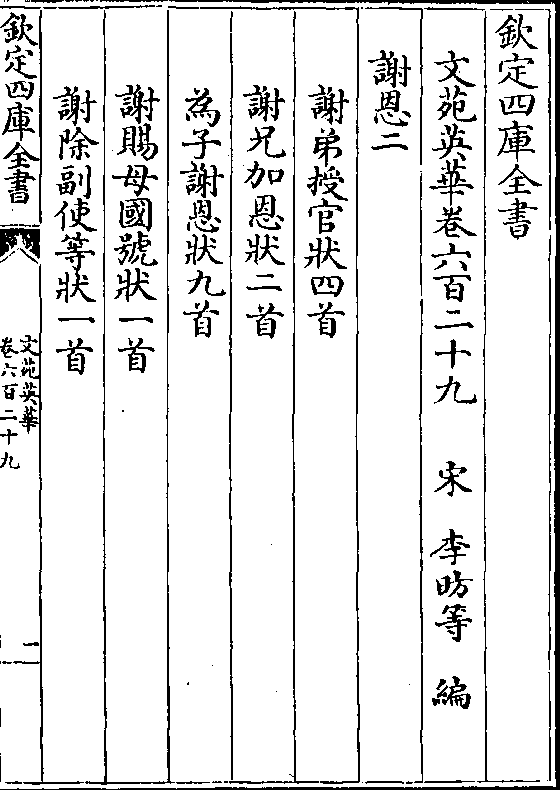 欽定四庫全書
文苑英華卷六百二十九　宋　李昉等　編
謝恩二
謝弟授官狀四首
謝兄加恩狀二首
為子謝恩狀九首
謝賜母國號狀一首
謝除副使等狀一首
欽定四庫全書
文苑英華
卷六百二十九
一